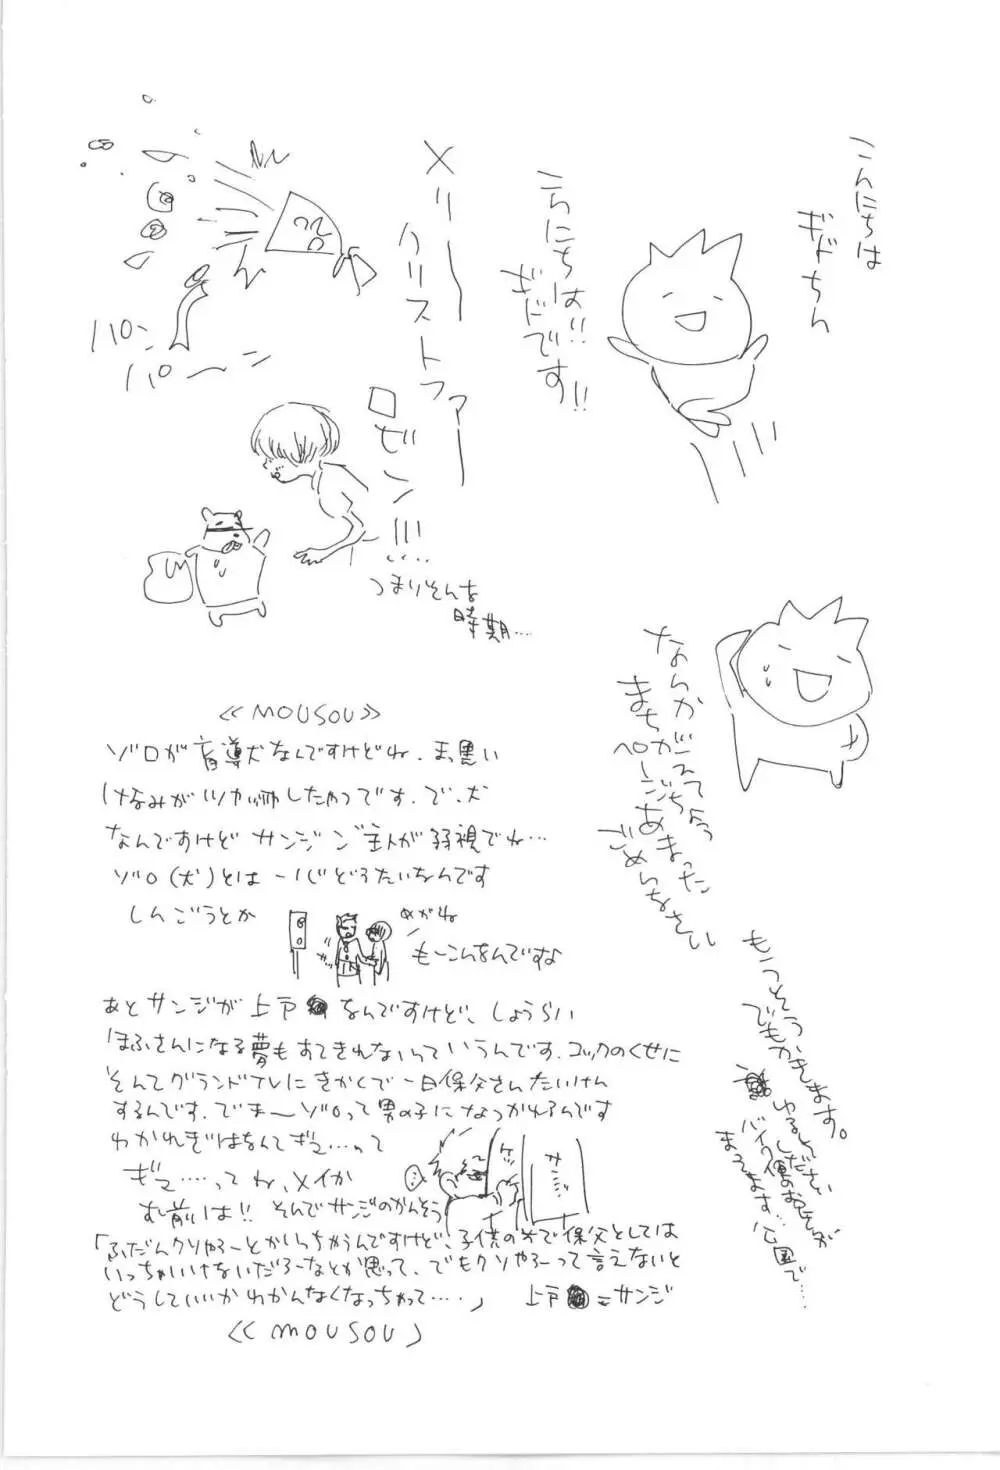 こんにちは
ギドちん
こんにちは!!
ギドです!!
メリー
クリストファー
ロビン!!!…
つまりそんな
時期…
パン
パーン
なんかまちがえて
ページちょう
あまった
ごめんなさい
もうそう
でもかきます。
ゆるしてください
バイク便のおじさんが
まってます…公園で…
《MOUSOU》
ゾロが盲導犬なんですけどね、まっ黒い
けなみがツヤツヤしたやつです。で、犬
なんですけどサンジご主人が弱視でね…
ゾロ(犬)とは一心どうたいなんです
しんごうとか
めがね
もーこんなんですな
あとサンジが上戸 なんですけど、しょうらい
ほふさんになる夢もすてきれないっていうんです。コックのくせに
そんでグランドフレにきかくで一日保父さんたいけん
するんです。でまーゾロって男の子になつかれるんです
わかれぎわなんてギュ…って
ギュ……ってね、メイか
む前は!!そんでサンジのかんそう
「ふだんクソやろーとかいっちゃうんですけど、子供の前で保父としては
いっちゃいけないだろーなとか思って、でもクソやろーって言えないと
どうしていいかわかんなくなっちゃって……」 上戸 =サンジ
《MOUSOU》